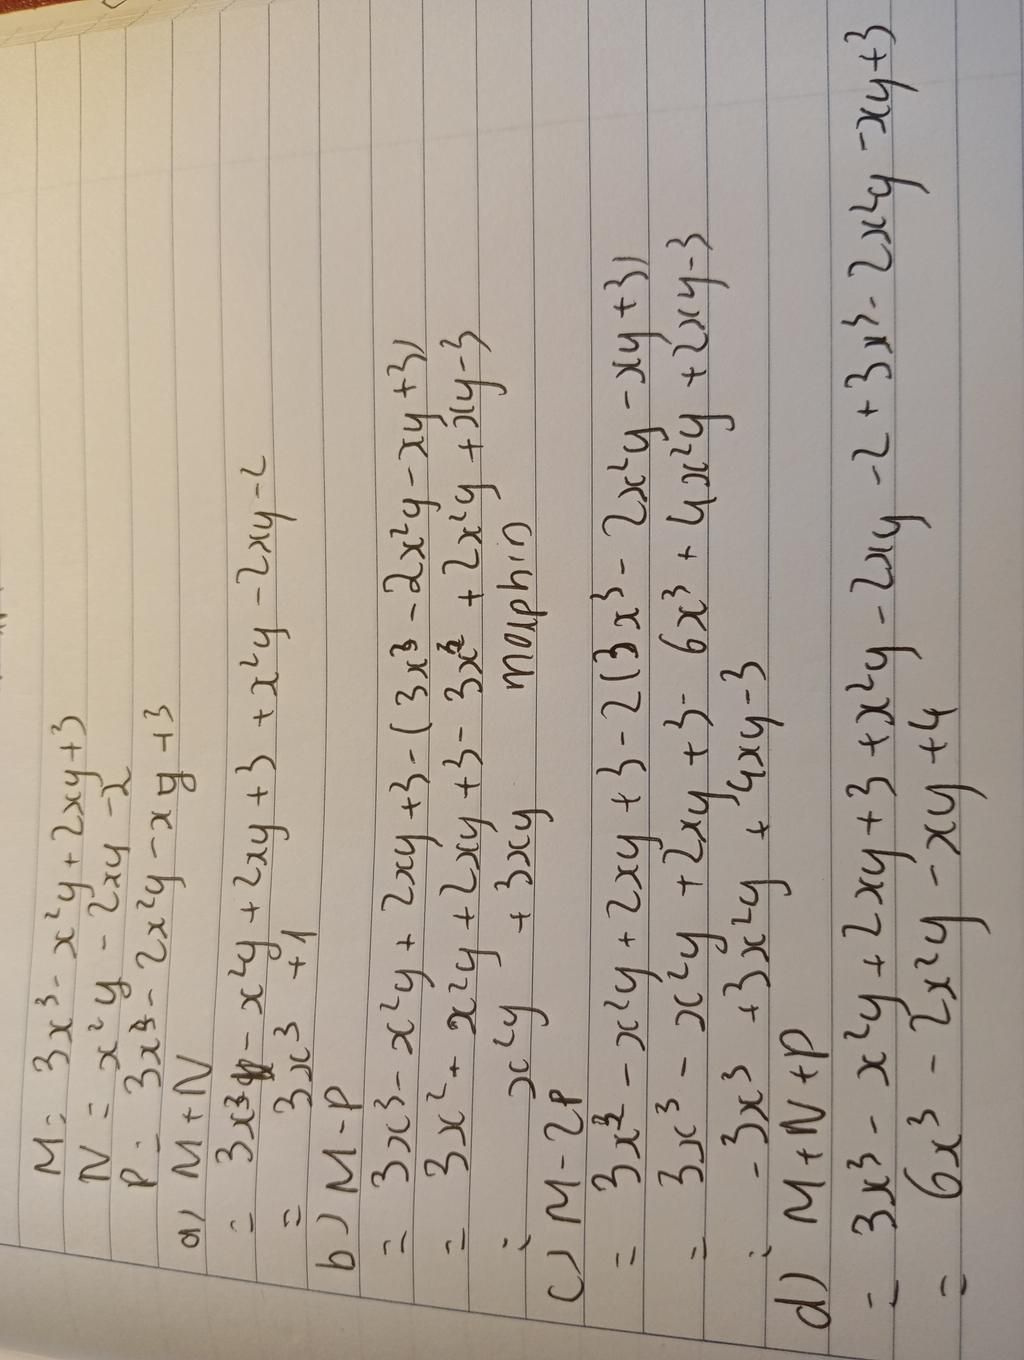 M = 3x³ - x²y + 2xy + 3
N = x²y - 2xy - 2
P = 3x³ - 2x²y - xy + 3
a) M + N
= 3x³ - x²y + 2xy + 3 + x²y - 2xy - 2
= 3x³ + 1
b) M - P
= 3x³ - x²y + 2xy + 3 - (3x³ - 2x²y - xy + 3)
= 3x² + x²y + 2xy + 3 - 3x² + 2x²y + xy - 3
= x²y + 3xy morphin
c) M - 2P
= 3x³ - x²y + 2xy + 3 - 2(3x³ - 2x²y - xy + 3)
= 3x³ - x²y + 2xy + 3 - 6x³ + 4x²y + 2xy - 3
= - 3x³ + 3x²y + 4xy - 3
d) M + N + P
= 3x³ - x²y + 2xy + 3 + x²y - 2xy - 2 + 3x³ - 2x²y - xy + 3
= 6x³ - 2x²y - xy + 4